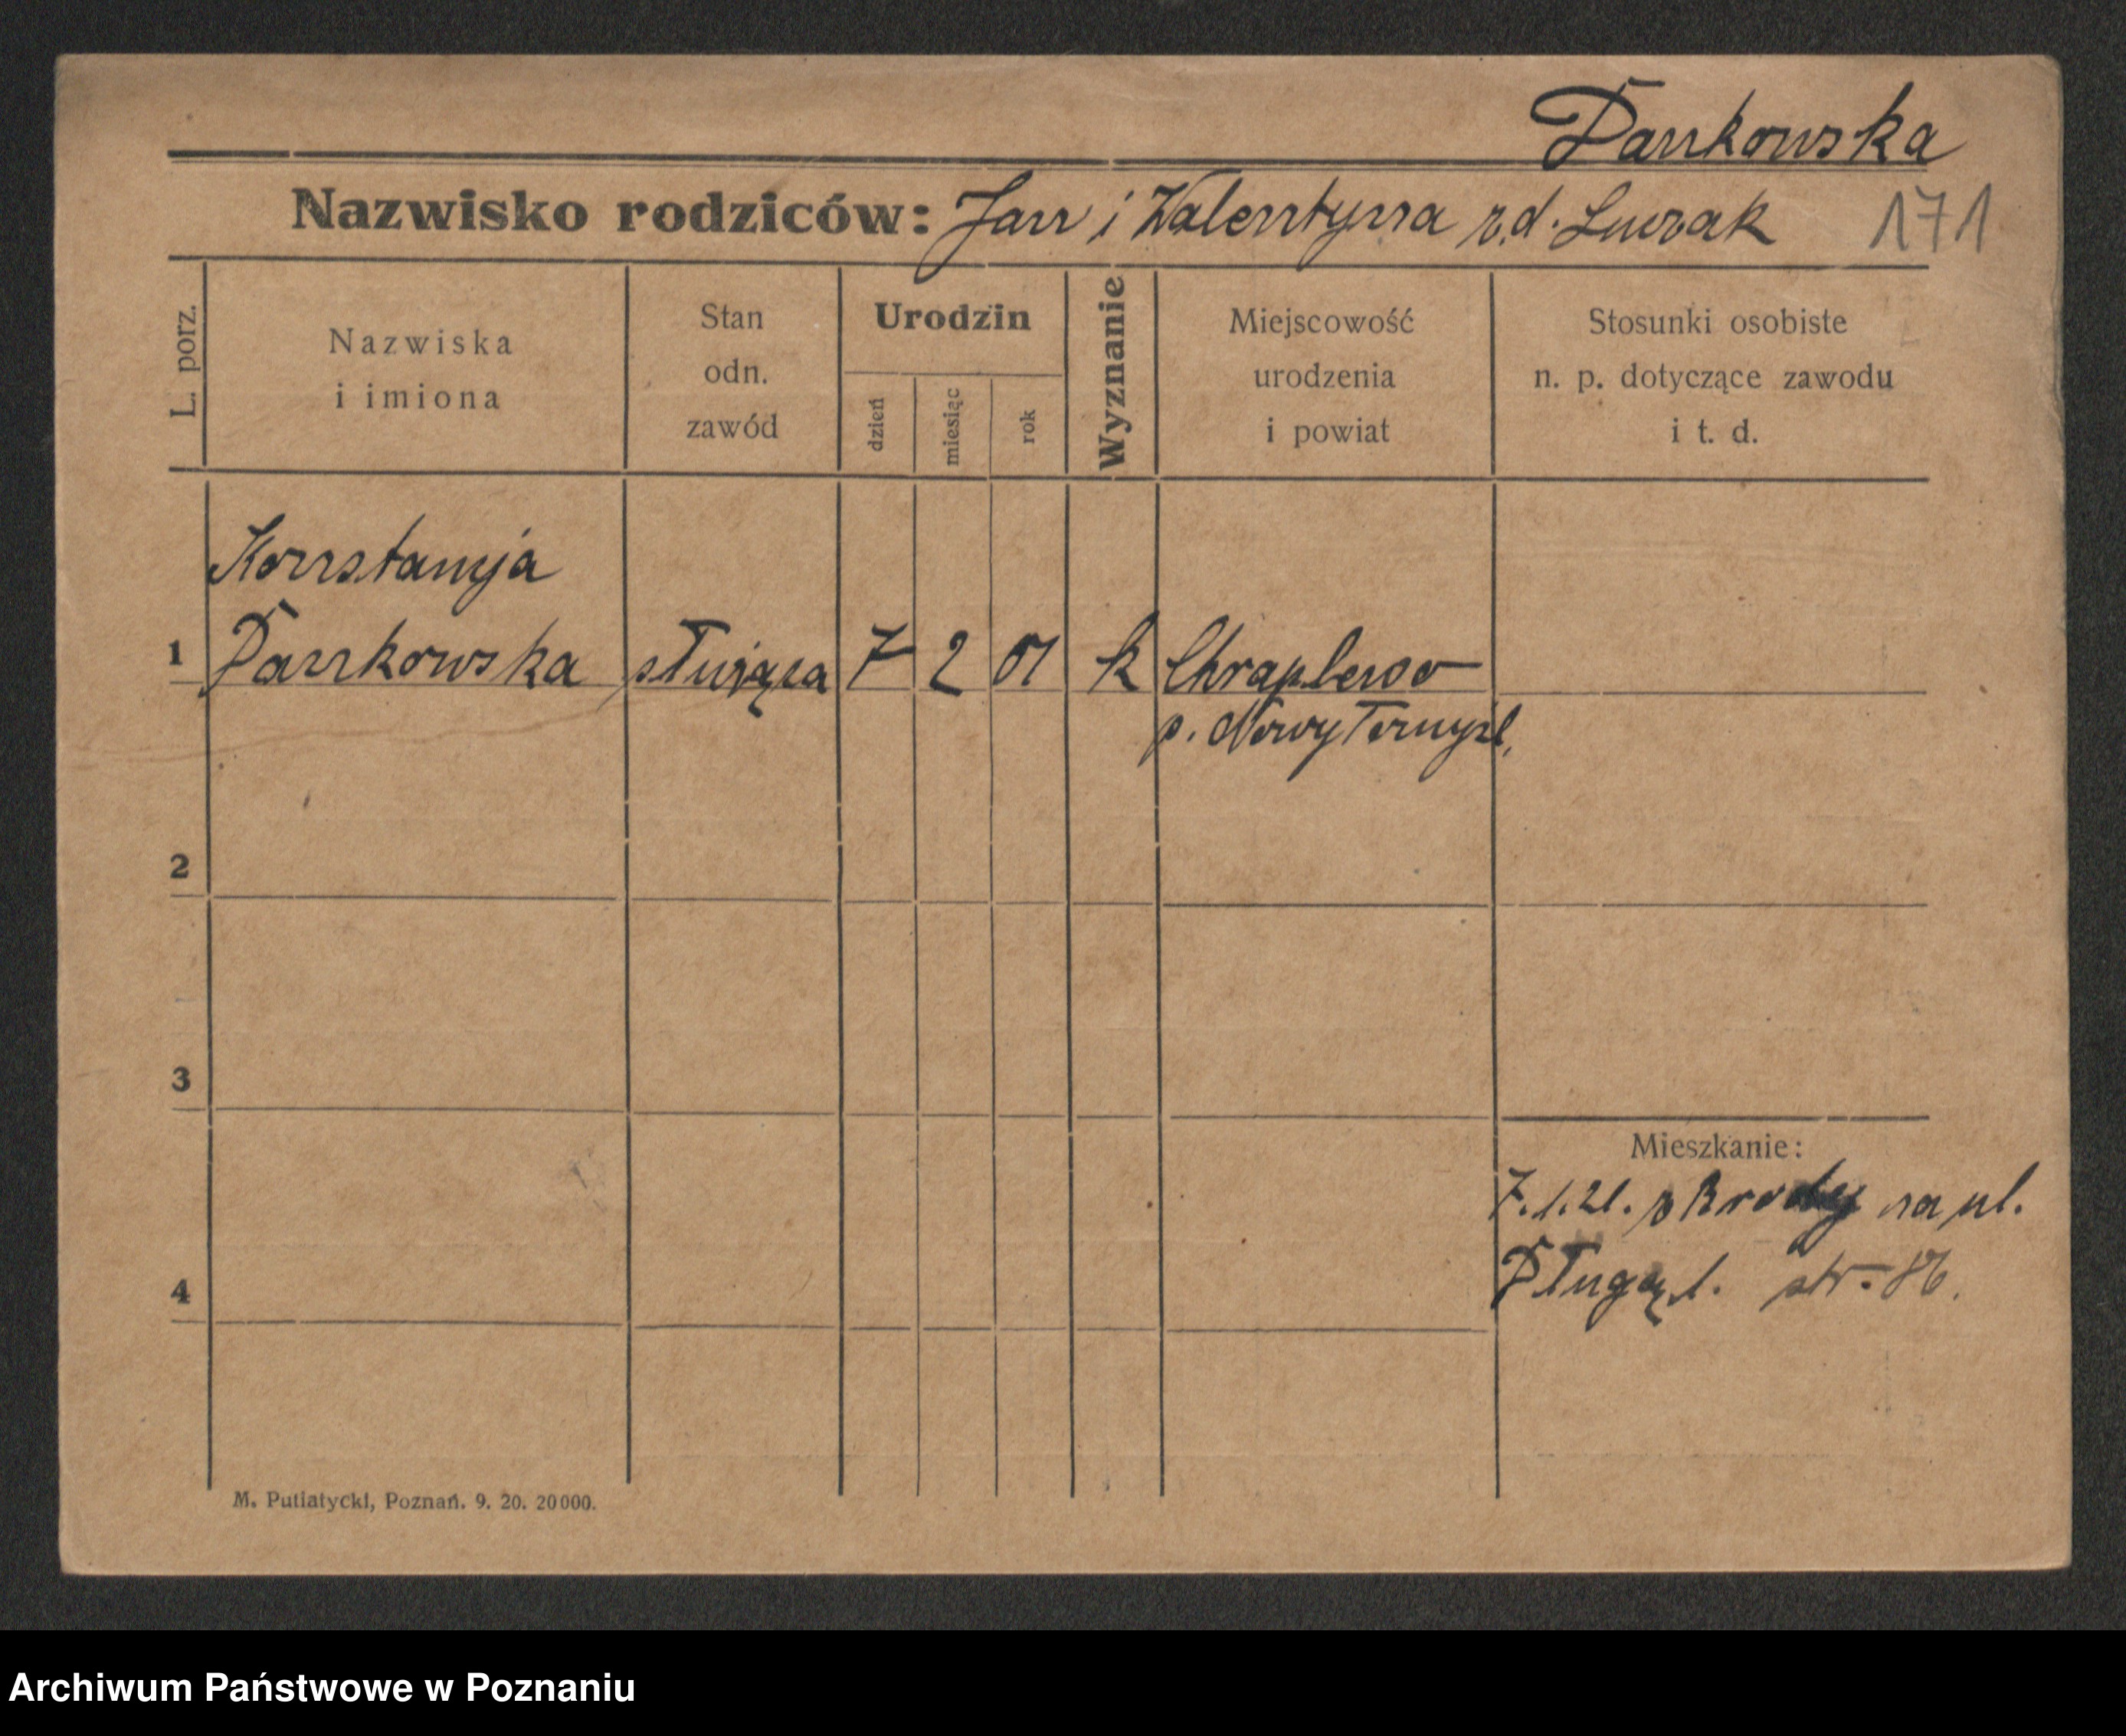 Dankowska
Nazwisko rodziców: Jan i Walentyna z.d. Luczak 171
L. porz.
Nazwiska
i imiona
Stan
odn.
zawód
Urodzin
dzień
miesiąc
rok
Wyznanie
Miejscowość
urodzenia
i powiat
Stosunki osobiste
n. p. dotyczące zawodu
i t. d.
Konstancja
1 Dankowska służąca 7 2 01 k Chraplewo
p. Nowy Tomyśl,
2
3
Mieszkanie:
7.1.21. z Brody na ul.
Długą 1. str.
4
M. Putiatycki, Poznań. 9. 20. 20000.
Archiwum Państwowe w Poznaniu